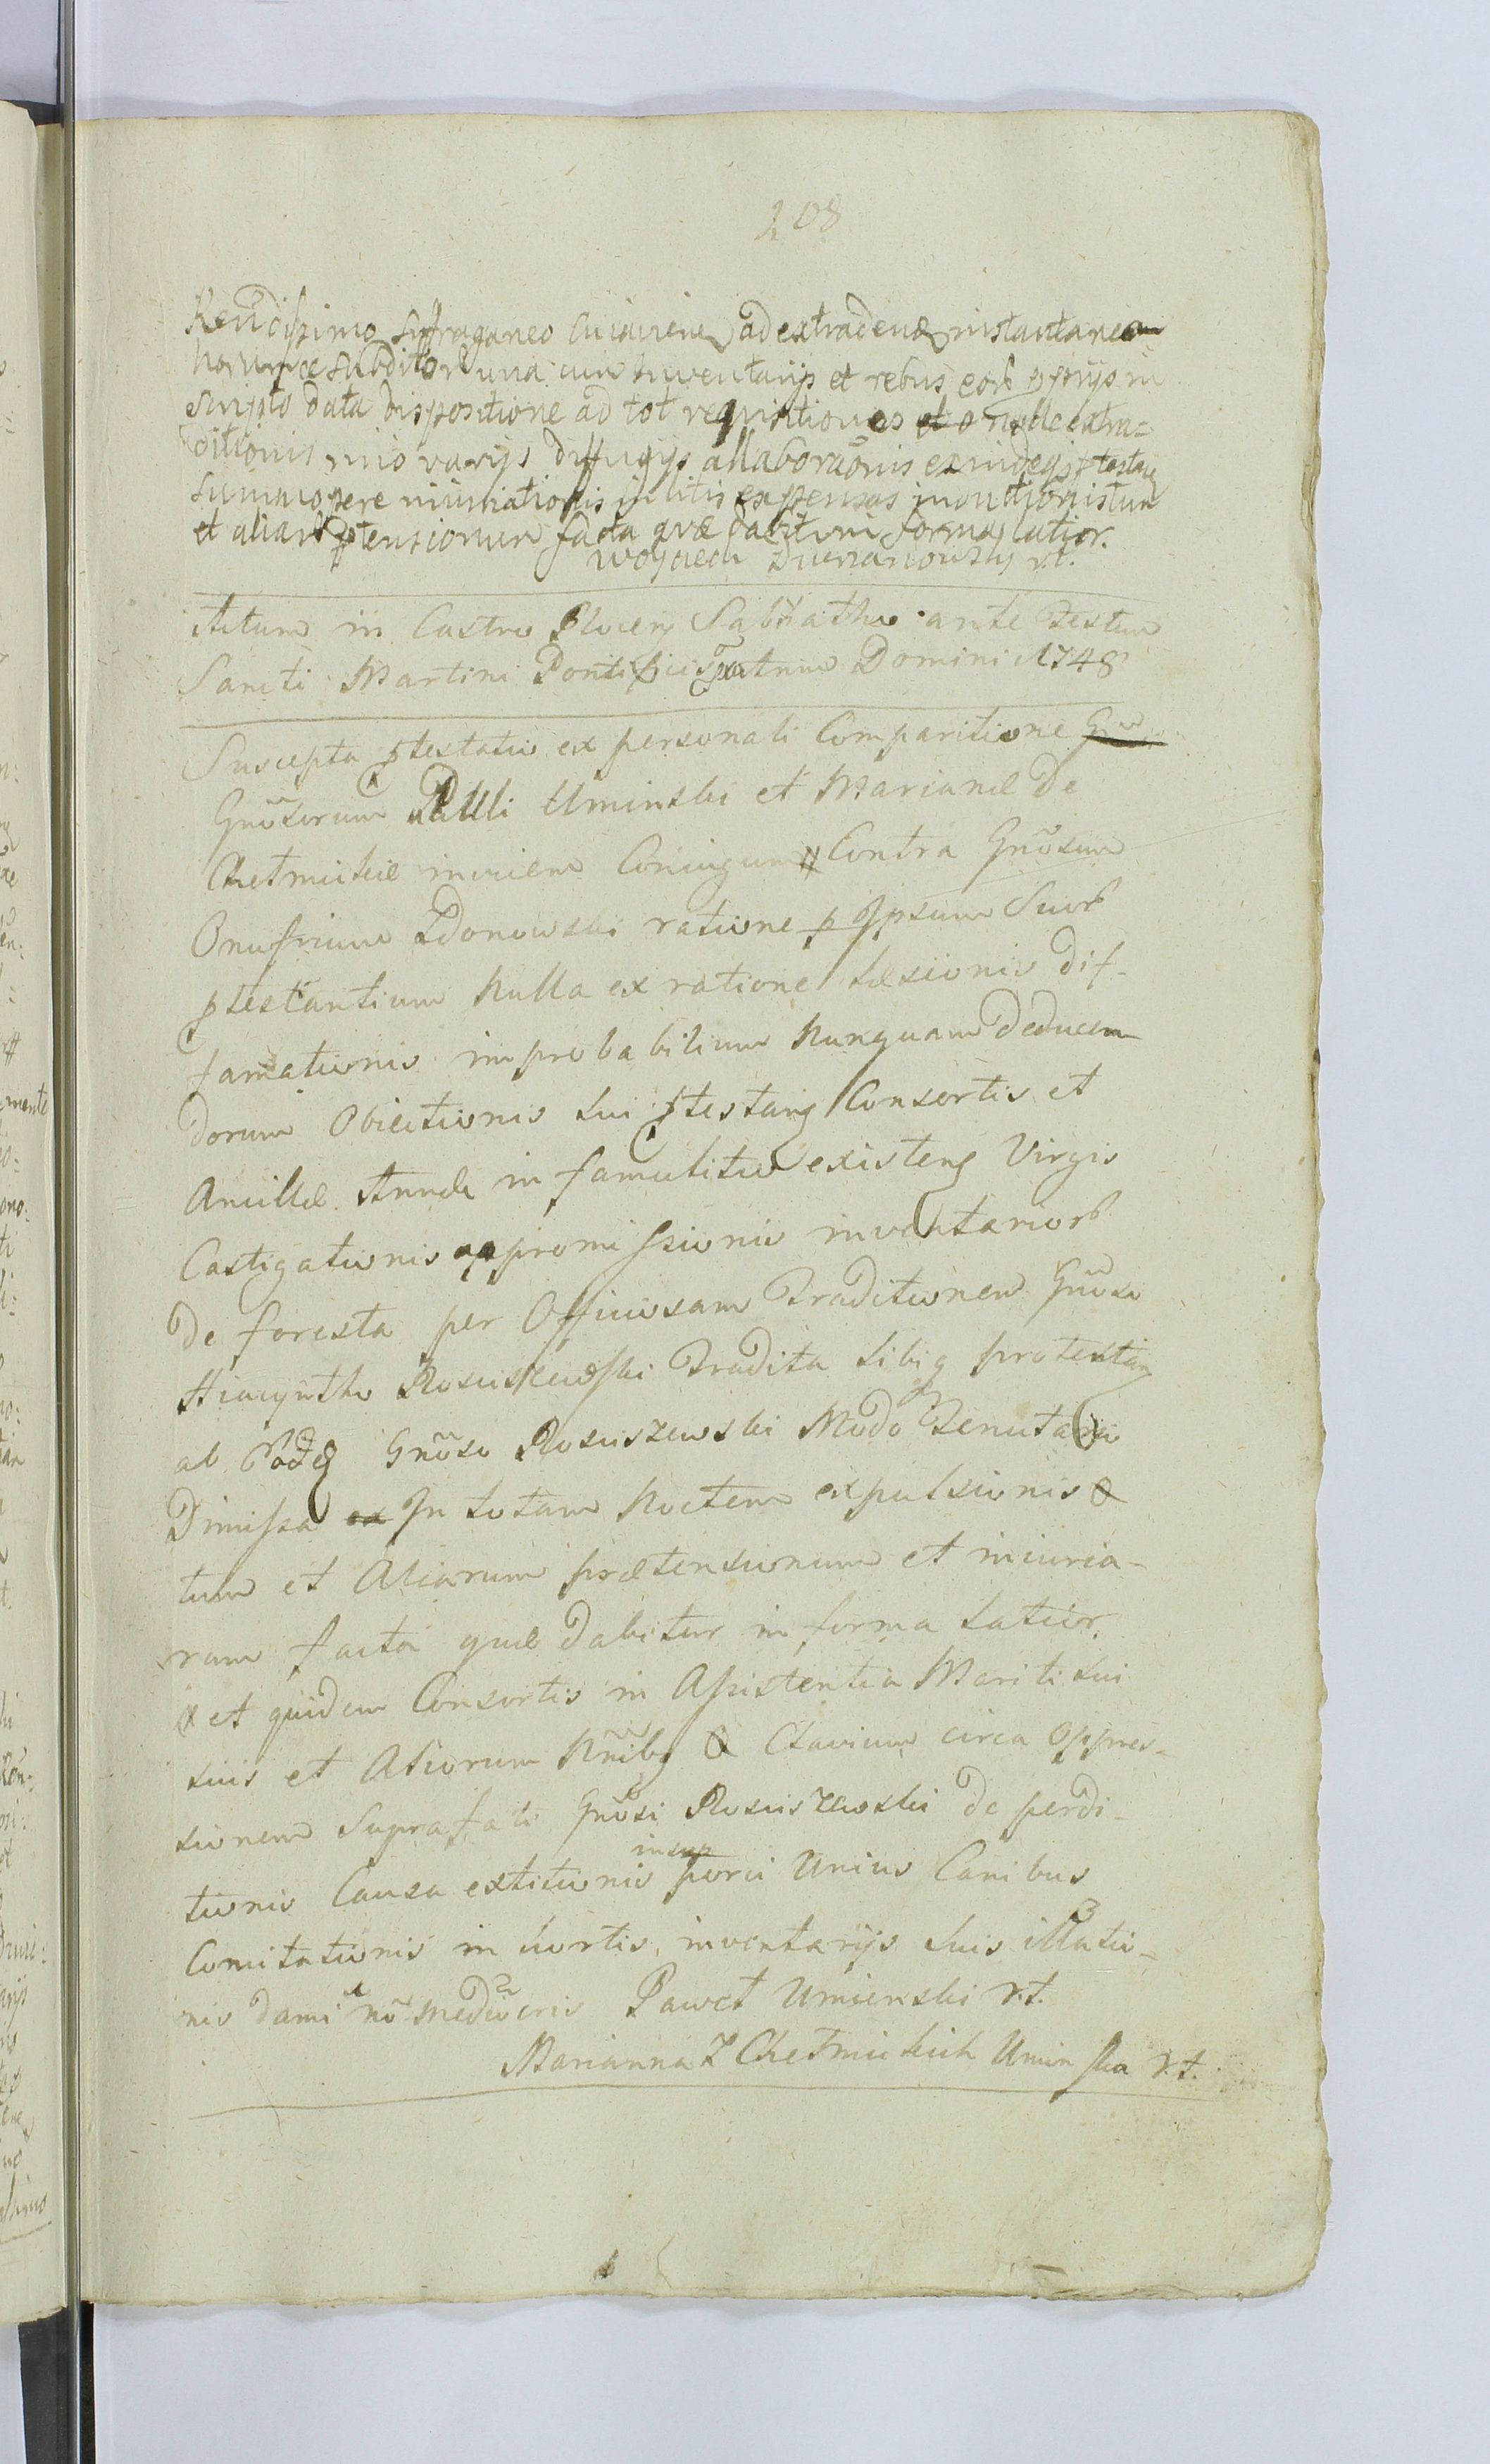 208
Rendissimo Suffraganeo Cuiaviens ad extradend instantaneam
horumce subditor una cum inventarijs et rebus eor pprijs in
scripto data dispositione ad tot requisitiones et extra=
ditionis varijs diffugijs allaborãonis exindeq ptestan
summopere iniuriationis in litis expensas inductionis tum
et aliar ptensionum facta quæ dabitur in forma latior.
Woyciech r.t.
Actum in Castro Plocen Sabbatho ante Festum
Sancti Martini Pontificis Anno Domini 1748
Suscepta ptestatio ex personali Comparitione
Gnõsorum Pauli Uminski et Marianæ De
Chełmickie invicem Coniugum Contra Gnõsum
Onufrium Zdonowski ratione p Ipsum Suor
ptestantium Nulla ex ratione Læsionis dif-
famationis improbabilium Nunquam Deducen
dorum Obiectionis Sui ptestans Consortis et
Ancillæ Annæ in famulitio existens Virgis
Castigationis appromissionis inventarior
De foresta per Officiosam Traditionem Gnõso
Hiacyntho Rosciszewski Tradita Sibiq protestan
ab Gnõso Rosciszewski Modo Tenutario
Dimissa ex In totam Noctem expulsionis
tum et Aliarum prætensionum et iniuria-
rum facta quæ dabitur in forma Latior.
et quidem Consortis in Assistentia Mariti sui
suis et Aliorum Clavium circa Oppres-
sionem Suprafati Gnõsi Rosciszewski deperdi-
tionis Causa extitionis insup porci Unius Canibus
Comitationis in hortis, inventarijs Suis illatio-
nis damni nõ Mediocris Paweł Uminski r.t.
Marianna z Chełmickich Uminska r.t.